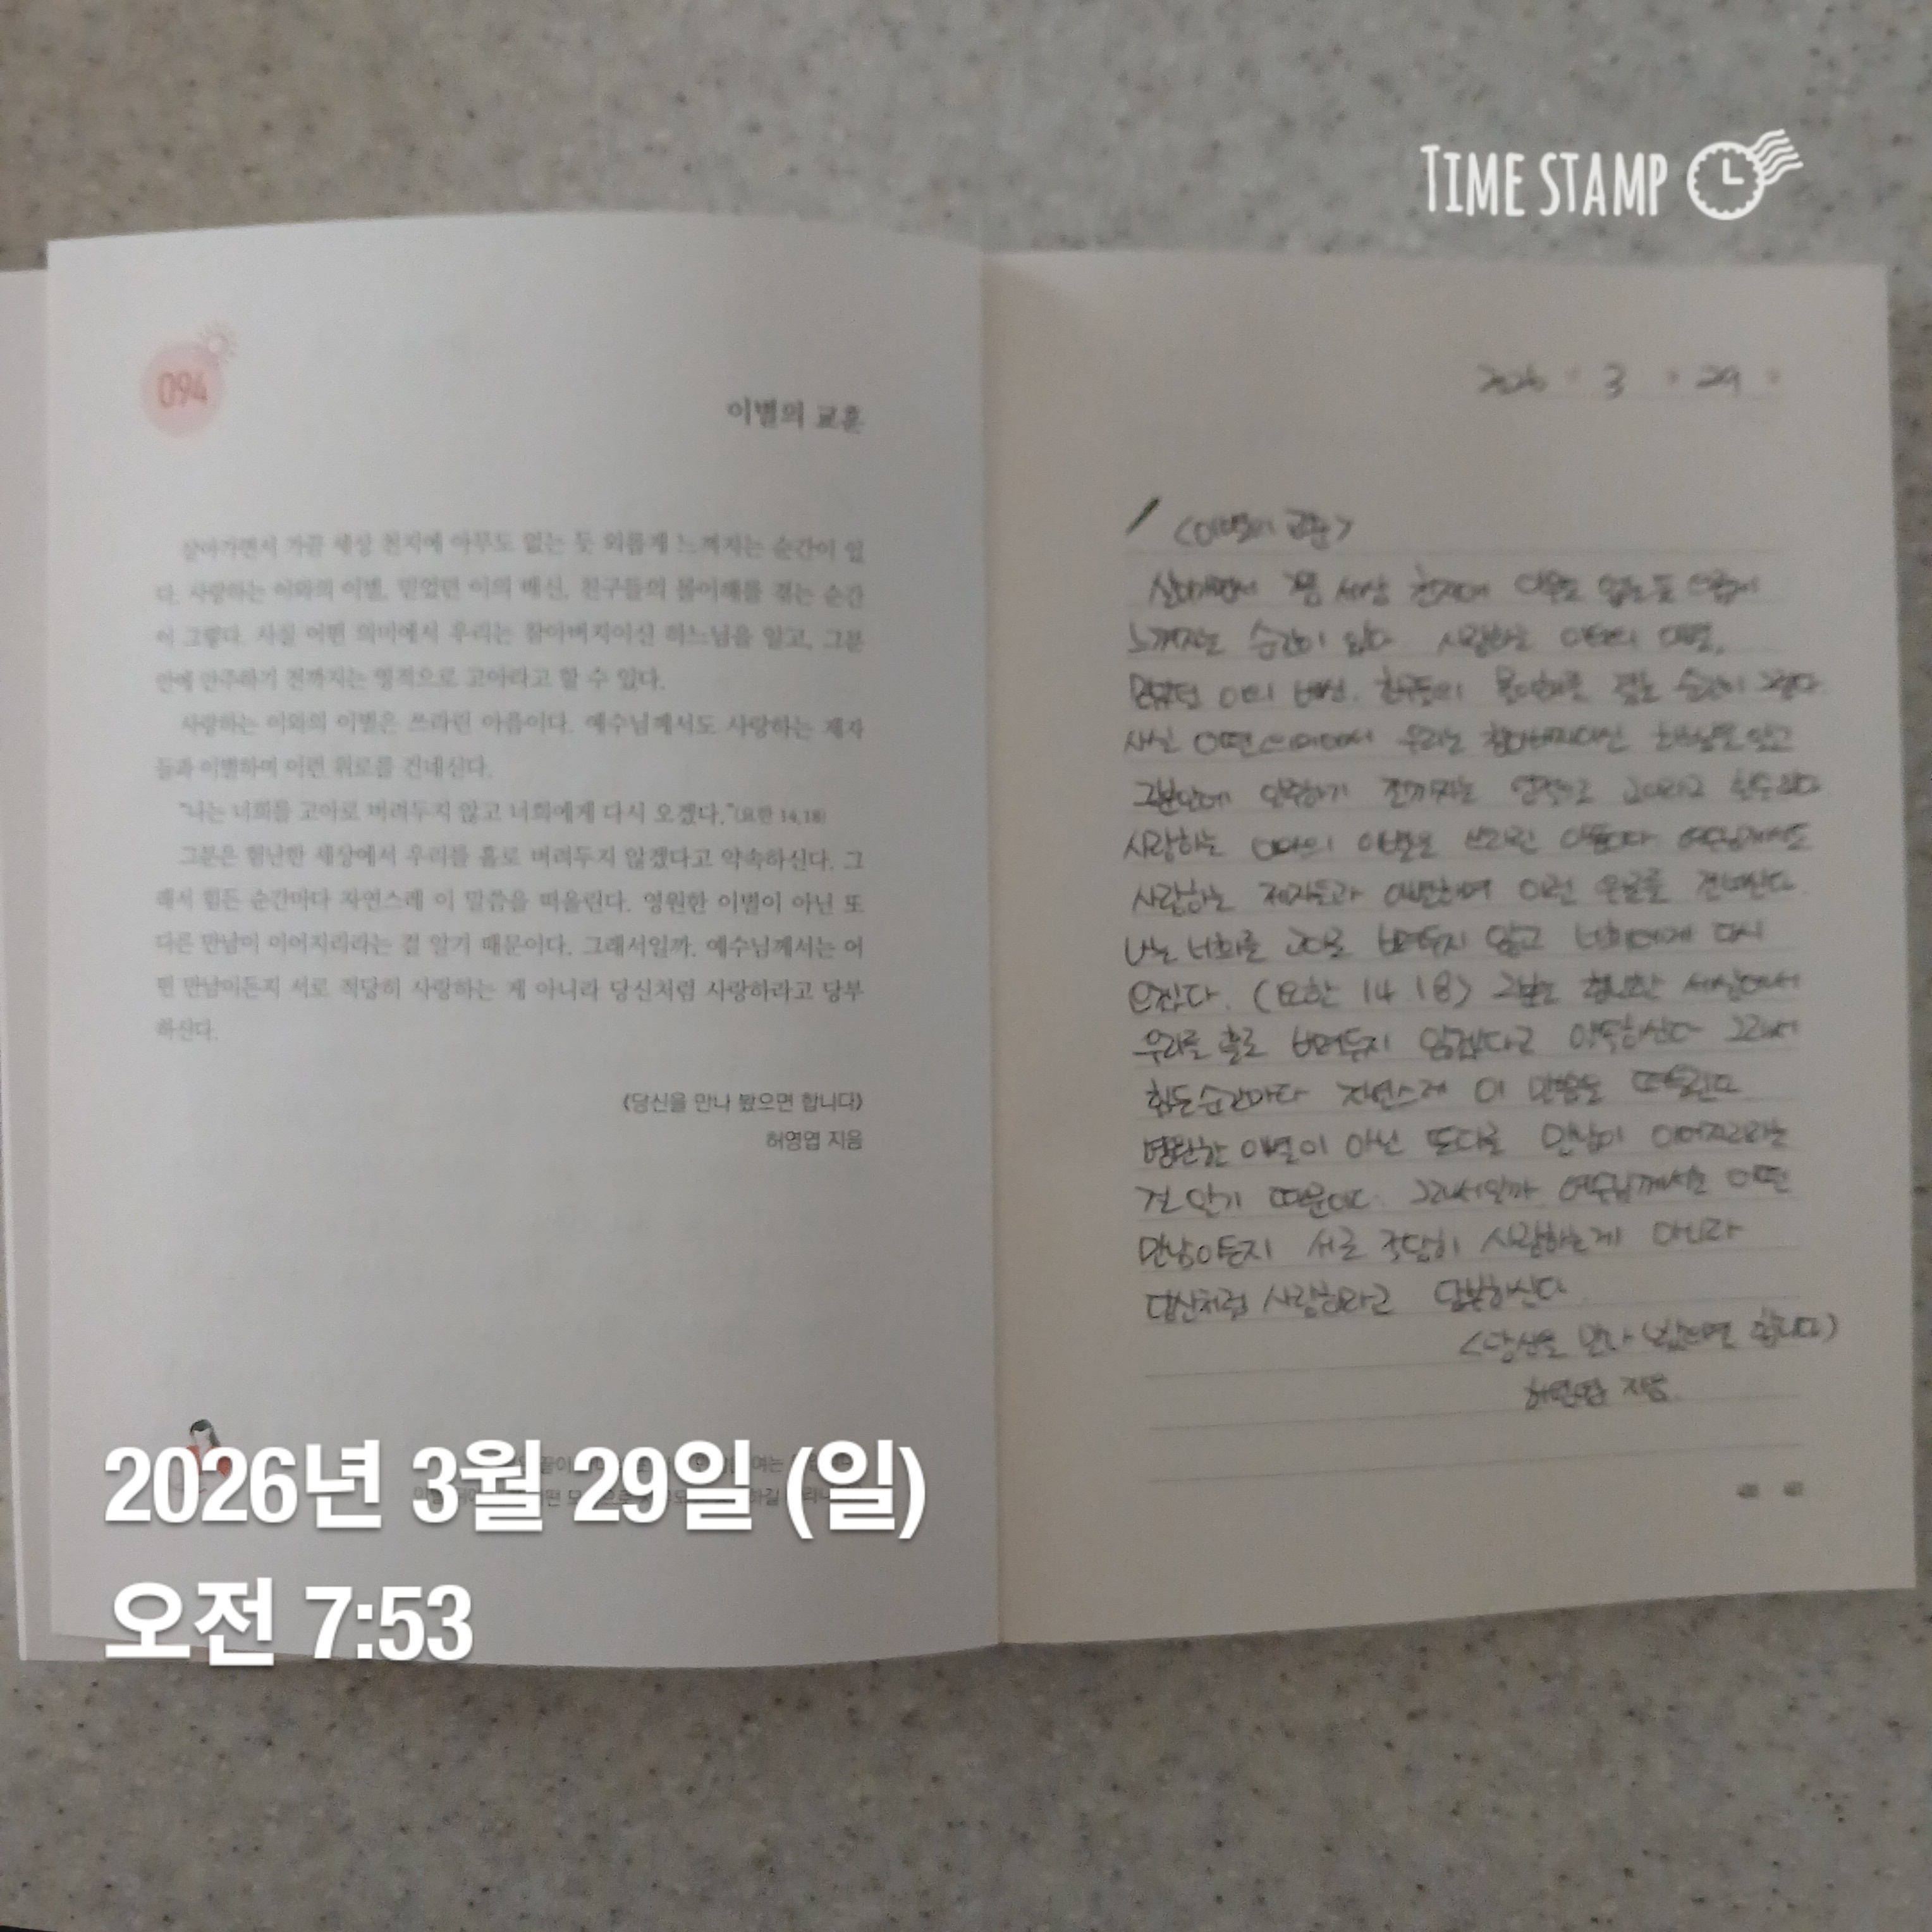 TIME STAMP
094
이별의 교훈
살아가면서 가끔 세상 천지에 아무도 없는 듯 외롭게 느껴지는 순간이 있
다. 사랑하는 이와의 이별, 믿었던 이의 배신, 친구들의 몰이해를 겪는 순간
이 그렇다. 사실 어떤 의미에서 우리는 참아버지이신 하느님을 알고, 그분
안에 안주하기 전까지는 영적으로 고아라고 할 수 있다.
사랑하는 이와의 이별은 쓰라린 아픔이다. 예수님께서도 사랑하는 제자
들과 이별하며 이런 위로를 건네신다.
"나는 너희를 고아로 버려두지 않고 너희에게 다시 오겠다."(요한 14,18)
그분은 험난한 세상에서 우리를 홀로 버려두지 않겠다고 약속하신다. 그
래서 힘든 순간마다 자연스레 이 말씀을 떠올린다. 영원한 이별이 아닌 또
다른 만남이 이어지리라는 걸 알기 때문이다. 그래서일까. 예수님께서는 어
떤 만남이든지 서로 적당히 사랑하는 게 아니라 당신처럼 사랑하라고 당부
하신다.
《당신을 만나 봤으면 합니다》
허영엽 지음
2026 3 29
<이별의 교훈>
살아가면서 가끔 세상 천지에 아무도 없는 듯 외롭게
느껴지는 순간이 있다 사랑하는 이와의 이별,
믿었던 이의 배신. 친구들의 몰이해를 겪는 순간이 그렇다
사실 어떤 의미에서 우리는 참아버지이신 하느님을 알고
그분안에 안주하기 전까지는 영적으로 고아라고 할수있다
사랑하는 이와의 이별은 쓰라린 아픔이다 예수님께서도
사랑하는 제자들과 이별하며 이런 위로를 건네신다.
나는 너희를 고아로 버려두지 않고 너희에게 다시
오겠다. (요한 14 18) 그분은 험난한 세상에서
우리를 홀로 버려두지 않겠다고 약속하신다 그래서
힘든순간마다 자연스레 이 말씀을 떠올린다
영원한 이별이 아닌 또다른 만남이 이어지리라는
걸 알기 때문이다. 그래서일까 예수님께서는 어떤
만남이든지 서로 적당히 사랑하는게 아니라
당신처럼 사랑하라고 당부하신다
<당신을 만나 봤으면 합니다>
허영엽 지음.
2026년 3월 29일 (일)
오전 7:53